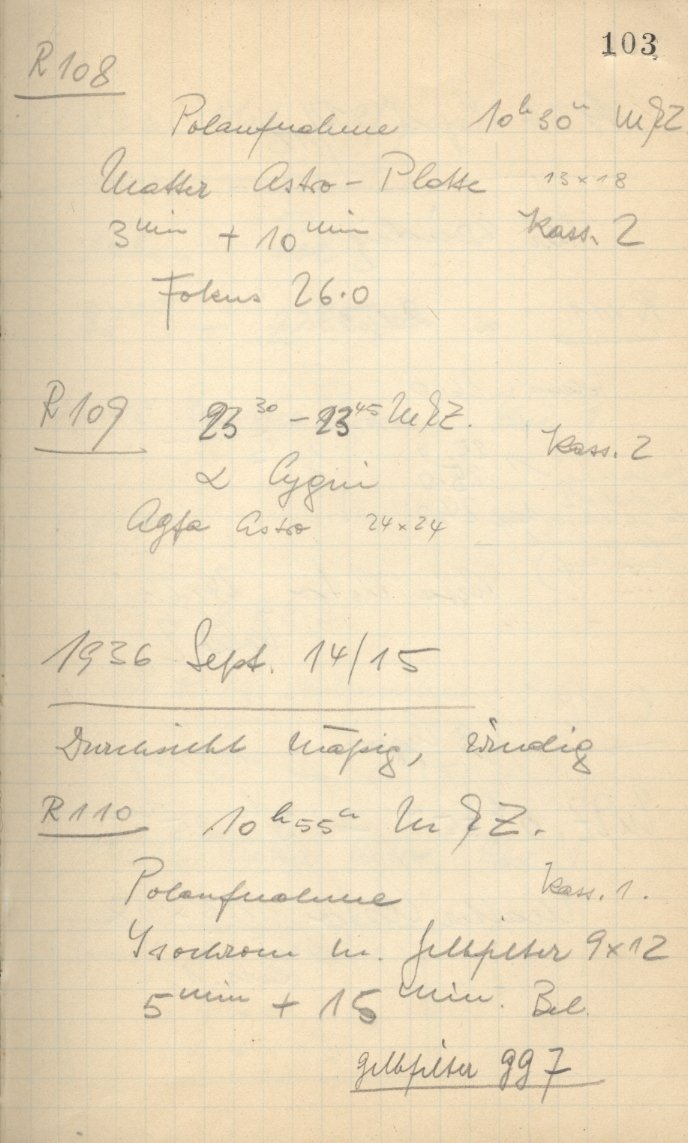 103
R 108
Polaufnahme 10h 30m MEZ
Matter Astro-Platte 13×18
3min + 10min Kass. 2
Fokus 26.0
R 109 23 30 - 23 45 MEZ.
Kass. 2
α Cygni
Agfa Astro 24×24
1936 Sept. 14/15
Durchsicht mäßig, windig
R 110 10h 55m MEZ.
Polaufnahme Kass. 1.
Isochrom m. Gelbfilter 9×12
5min + 15min. Bel.
Gelbfilter GG 7